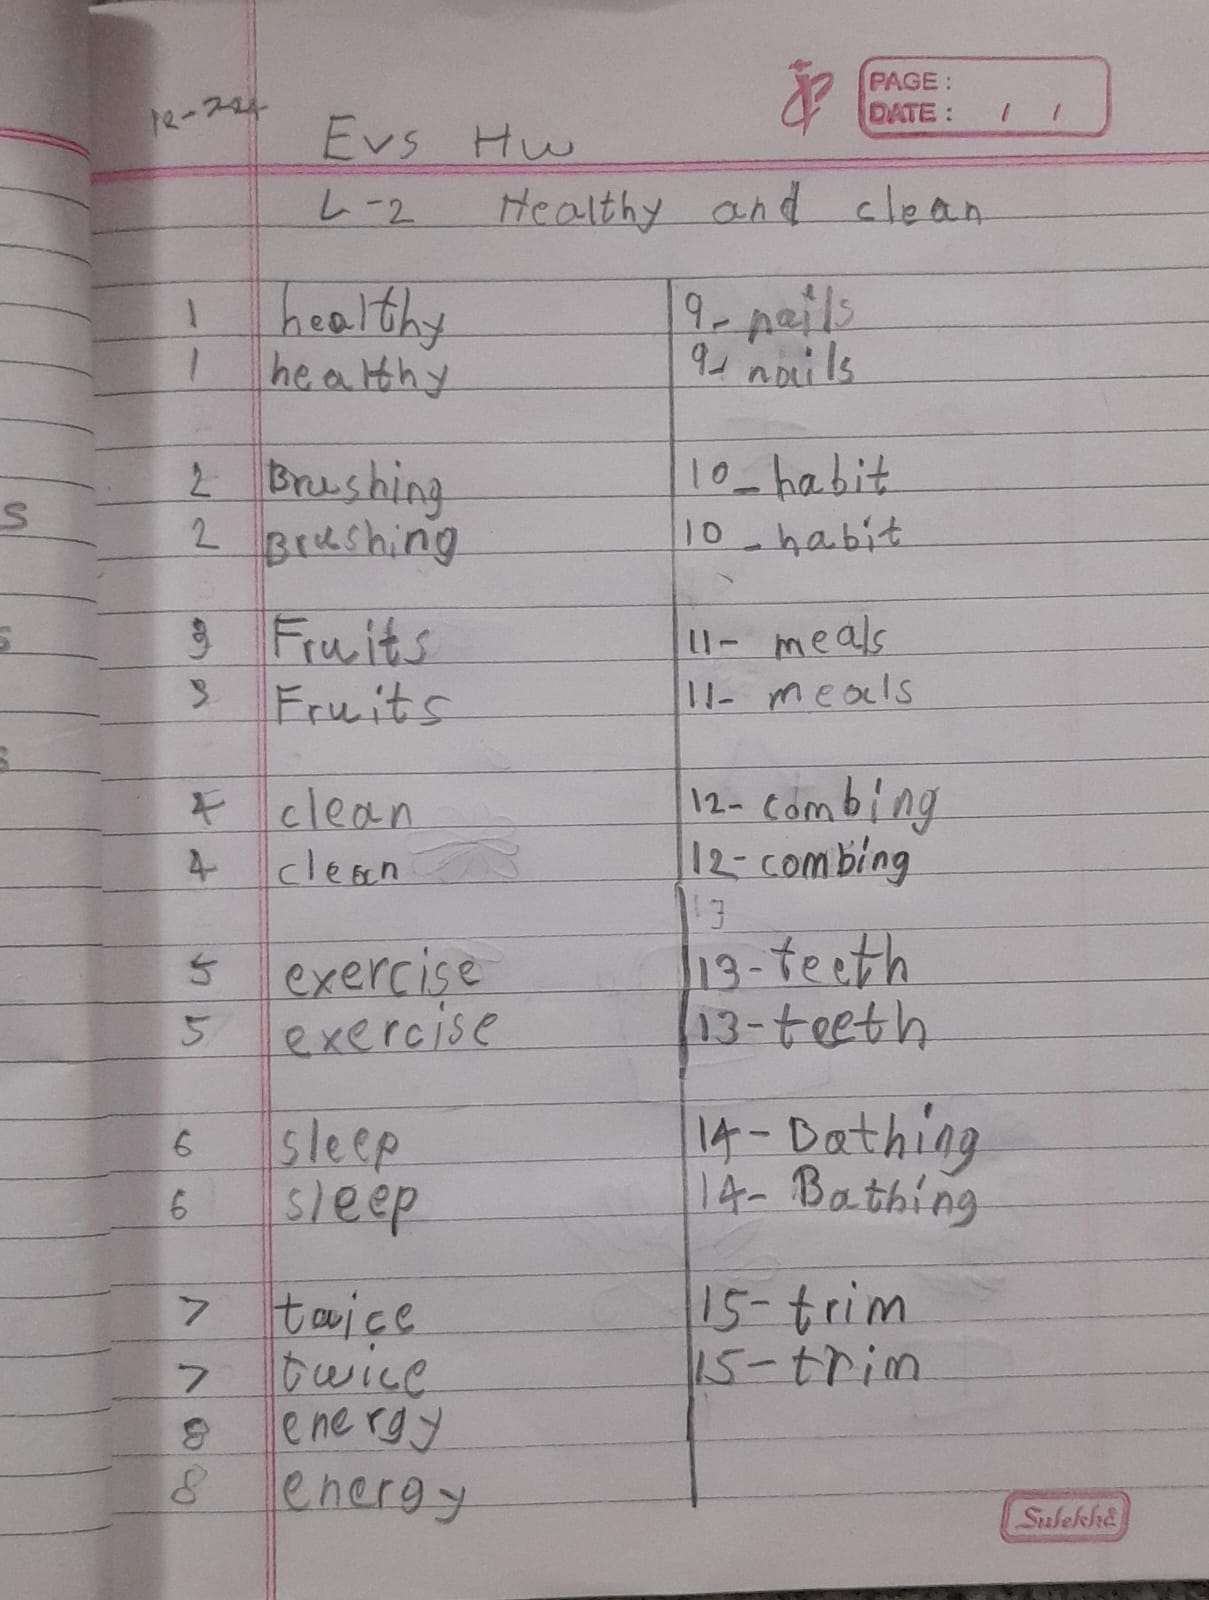 12-7-24
PAGE :
DATE : / /
Evs Hw
L-2 Healthy and clean
1 healthy
1 healthy
2 Brushing
2 Brushing
3 Fruits
3 Fruits
4 clean
4 clean
5 exercise
5 exercise
6 sleep
6 sleep
7 twice
7 twice
8 energy
8 energy
9- nails
9- nails
10-habit
10-habit
11- meals
11- meals
12-combing
12-combing
13
13-teeth
13-teeth
14-Bathing
14-Bathing
15-trim
15-trim
Sulekha